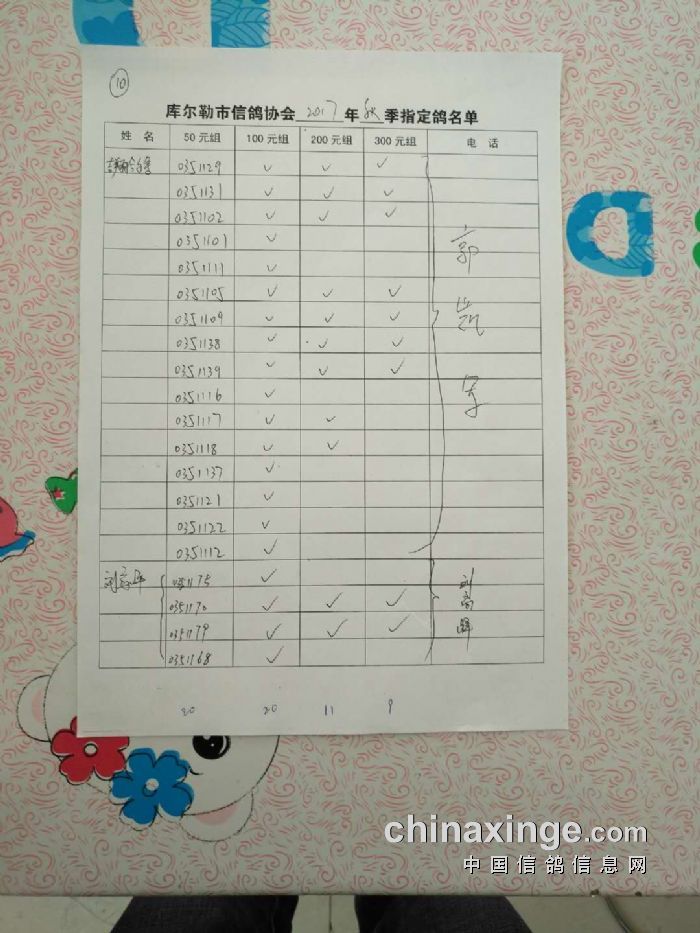 10
库尔勒市信鸽协会 2017 年 秋 季指定鸽名单
姓 名 50元组 100元组 200元组 300元组 电 话
0351129 ✓ ✓ ✓
0351131 ✓ ✓ ✓
0351102 ✓ ✓ ✓
0351101 ✓
0351111 ✓
0351105 ✓ ✓ ✓
0351109 ✓ ✓ ✓
0351138 ✓ ✓ ✓
0351139 ✓ ✓ ✓
0351116 ✓
0351117 ✓ ✓
0351118 ✓ ✓
0351137 ✓
0351121 ✓
0351122 ✓
0351112 ✓
郭凯军
0351175 ✓
0351170 ✓ ✓ ✓
0351179 ✓ ✓ ✓
0351168 ✓
20 20 11 9
chinaxinge.com
中国信鸽信息网